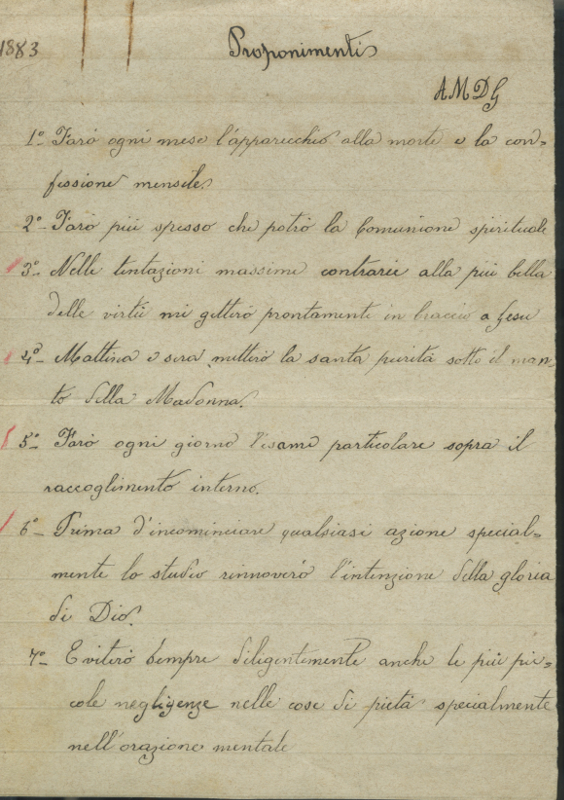 1883
Proponimenti
AMDG
1º Farò ogni mese l'apparecchio alla morte e la con=
fessione mensile.
2º- Farò più spesso che potrò la Comunione spirituale
3º- Nelle tentazioni massime contrarie alla più bella
delle virtù mi getterò prontamente in braccio a Gesù
4º- Mattina e sera metterò la santa purità sotto il man=
to della Madonna.
5º- Farò ogni giorno l'esame particolare sopra il
raccoglimento interno.
6º- Prima d'incominciare qualsiasi azione special=
mente lo studio rinnoverò l'intenzione della gloria
di Dio.
7º- Eviterò sempre diligentemente anche le più pic=
cole negligenze nelle cose di pietà specialmente
nell'orazione mentale